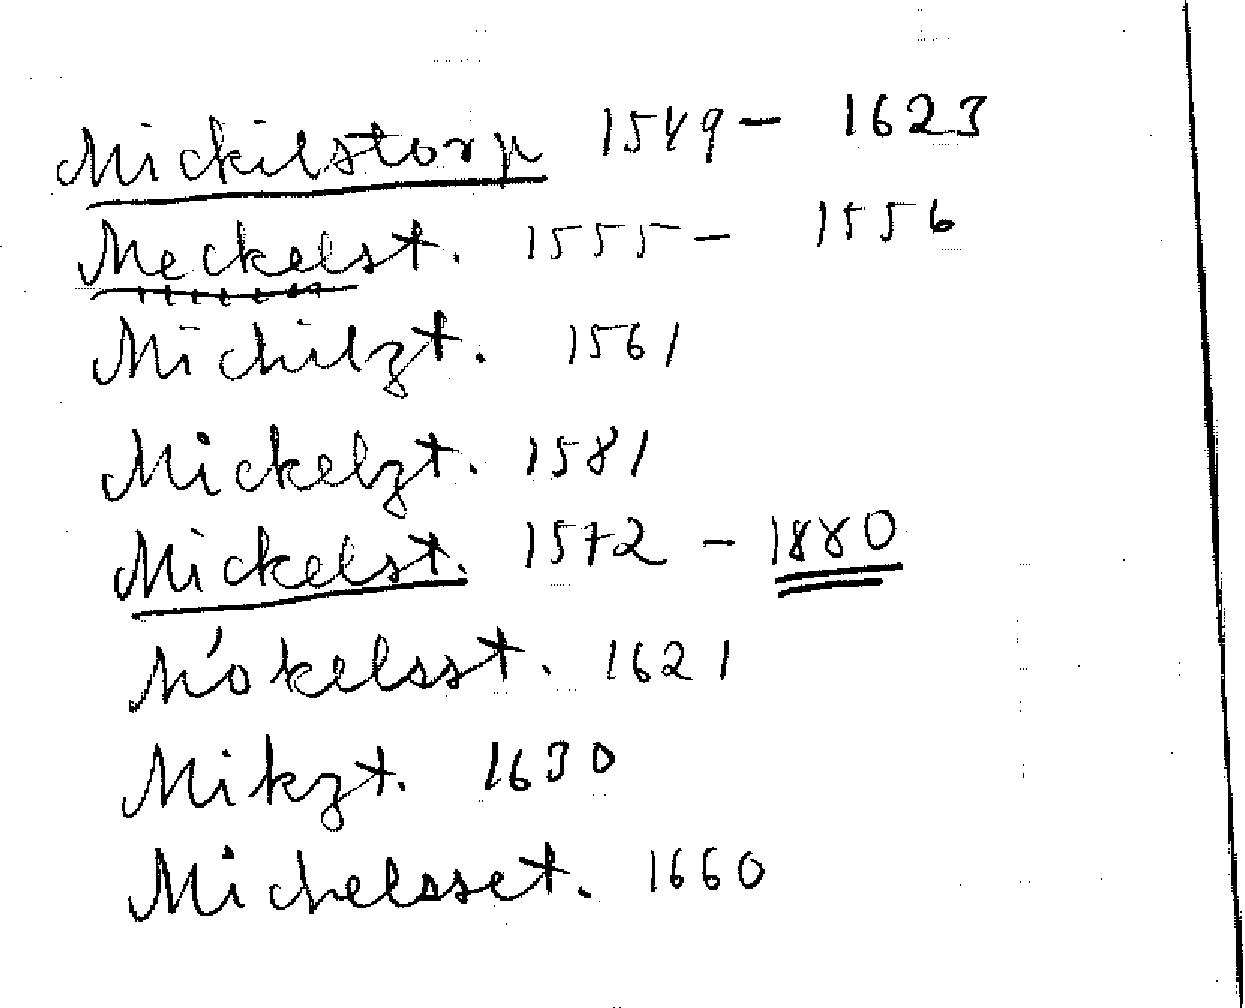 Mickilstorp 1549 - 1623
Meckelst. 1555 - 1556
Michilzt. 1561
Mickelzt. 1581
Mickelst. 1572 - 1880
Mökelsst. 1621
Mikzt. 1630
Michelsset. 1660